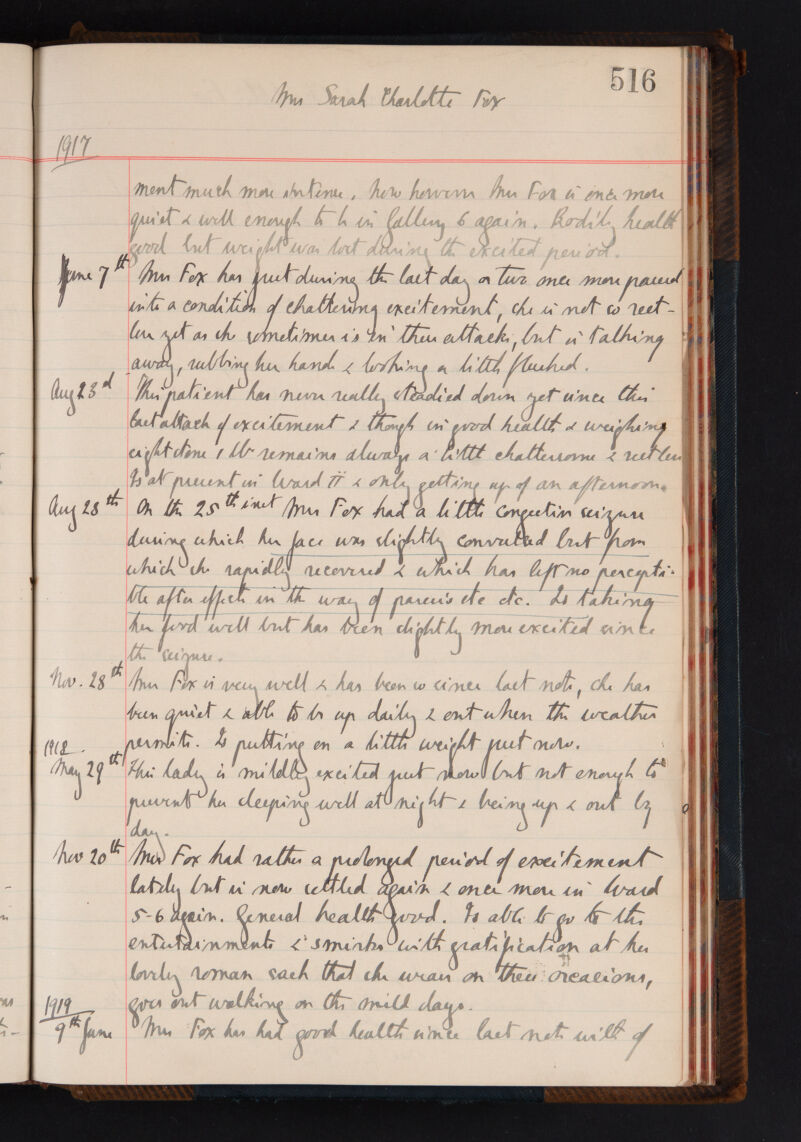 516
Mrs Sarah Charlotte Fox
1917
ment much more intense. Now however Mrs Fox is once more
quiet & well enough to be in Gallery 6 again. Bodily health
good but weight was lost during the excited period.
June 7th Mrs Fox has just during the last day or two once more passed
into a condition of chattering excitement, she is not so rest-
less yet as she sometimes is in these attacks, but is talking
away, rubbing her hands & looking a little flushed.
Aug 23d This patient has never really steadied down yet since this
last attack of excitement & though in good health & weighing
eight stone 1 lb remains always a little chattersome & restless
Is at present in Ward ii & only getting up of an afternoon.
Aug 28th On the 25th inst Mrs Fox had a little congestive seizure
during which her face was slightly convulsed but from
which she rapidly recovered & which has left no percepti-
ble after effects in the way of paresis etc etc. Is taking
her food well but has been slightly more excited since
the seizure.
Nov. 28th Mrs Fox is very well & has been so since last note, she has
been quiet & able to be up daily & out when the weather
permits. Is putting on a little weight just now.
1918.
May 29th This lady is mildly excited just now but not enough to
prevent her sleeping well at night & being up & out by
day.
Nov 20th Mrs Fox had rather a prolonged period of excitement
lately but is now settled again & once more in Ward
5-6 again. General health good. Is able to go to the
entertainments & smirks with gratification at her
lovely roman sash that she wears on these occasions,
goes out walking on the mild days.
1919
9th June Mrs Fox has had good health since last note with of